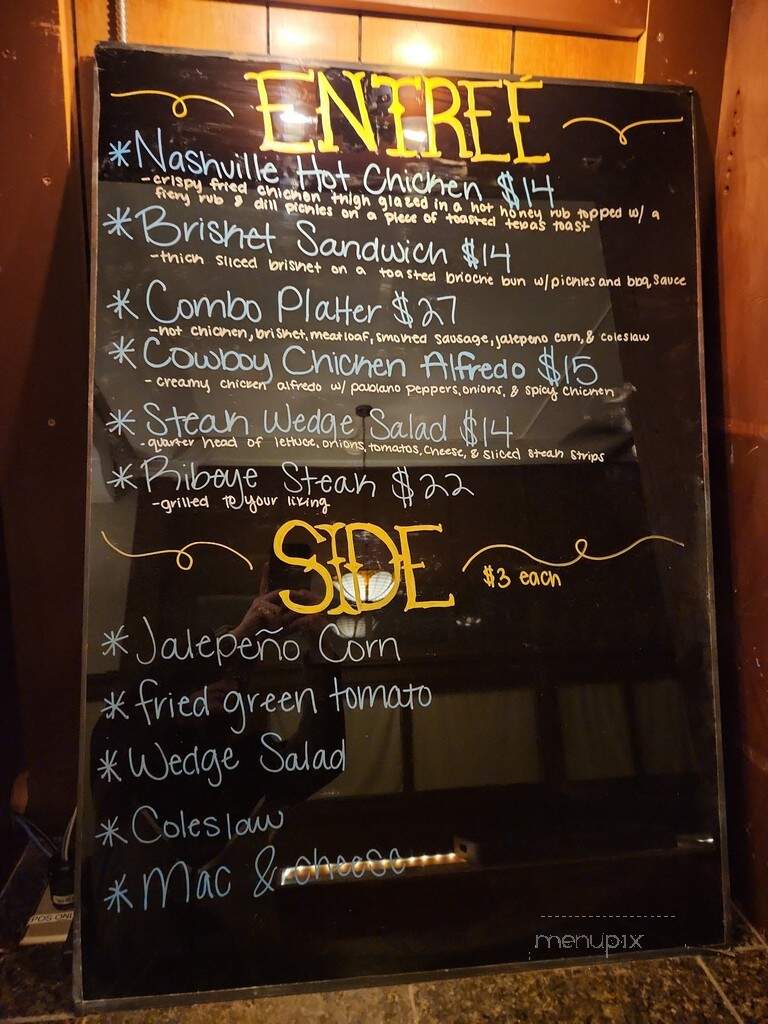 ENTREÉ
*Nashville Hot Chicken $14
-crispy fried chicken thigh glazed in a hot honey rub topped w/ a
fiery rub & dill pickles on a piece of toasted texas toast
*Brisket Sandwich $14
-thick sliced brisket on a toasted brioche bun w/pickles and bbq sauce
*Combo Platter $27
-hot chicken, brisket, meatloaf, smoked sausage, jalepeno corn, & coleslaw
*Cowboy Chicken Alfredo $15
- creamy chicken alfredo w/ pablano peppers, onions, & spicy chicken
*Steak Wedge Salad $14
-quarter head of lettuce, onions, tomatos, cheese, & sliced steak strips
*Ribeye Steak $22
-grilled to your liking
SIDE
$3 each
*Jalepeño Corn
*fried green tomato
*Wedge Salad
*Coleslaw
*Mac & cheese
POS ONLY
menupix